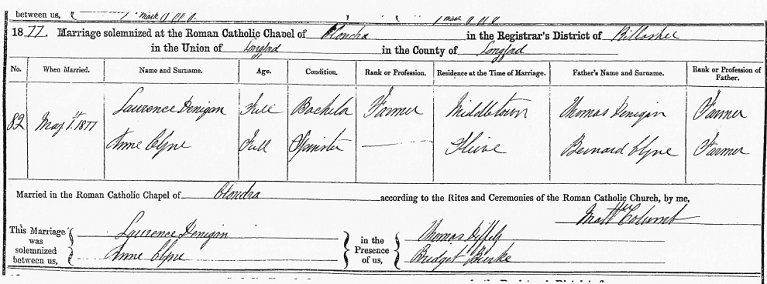 between us,
1877. Marriage solemnized at the Roman Catholic Chapel of Clondra in the Registrar's District of Killashee
in the Union of Longford in the County of Longford
No. When Married. Name and Surname. Age. Condition. Rank or Profession. Residence at the Time of Marriage. Father's Name and Surname. Rank or Profession of Father.
82 May 1st 1877 Laurence Denigan Full Bachelor Farmer Middletown Thomas Denigan Farmer
Anne Clyne Full Spinster Bernard Clyne Farmer
Married in the Roman Catholic Chapel of Clondra according to the Rites and Ceremonies of the Roman Catholic Church, by me,
Matt Columb
This Marriage was solemnized between us, Laurence Denigan in the Presence of us, Thomas
Anne Clyne Bridget Burke